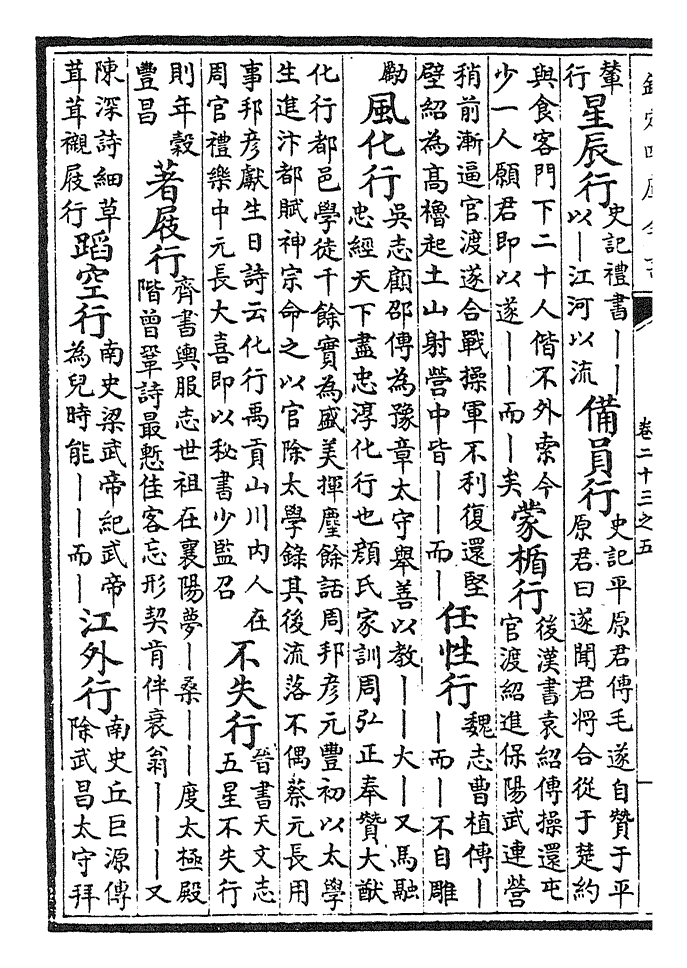 欽定四庫全書
卷二十三之五
輦
行
星辰行
史記禮書丨丨
以丨江河以流
備員行
史記平原君傳毛遂自贊于平
原君曰遂聞君將合從于楚約
與食客門下二十人偕不外索今
少一人願君即以遂丨丨而丨矣
蒙楯行
後漢書袁紹傳操還屯
官渡紹進保陽武連營
稍前漸逼官渡遂合戰操軍不利復還堅
壁紹為髙櫓起土山射營中皆丨丨而丨
任性行
魏志曹植傳丨
丨而丨不自雕
勵
風化行
吳志顧邵傳為豫章太守舉善以教丨丨大丨又馬融
忠經天下盡忠淳化行也顔氏家訓周弘正奉贊大猷
化行都邑學徒千餘實為盛美揮麈餘話周邦彦元豐初以太學
生進汴都賦神宗命之以官除太學錄其後流落不偶蔡元長用
事邦彦獻生日詩云化行禹貢山川内人在
周官禮樂中元長大喜即以秘書少監召
不失行
晉書天文志
五星不失行
則年穀
豐昌
著屐行
齊書輿服志世祖在襄陽夢丨桑丨丨度太極殿
階曾鞏詩最慙佳客忘形契肯伴衰翁丨丨丨又
陳深詩細草
茸茸襯屐行
蹈空行
南史梁武帝紀武帝
為兒時能丨丨而丨
江外行
南史丘巨源傳
除武昌太守拜